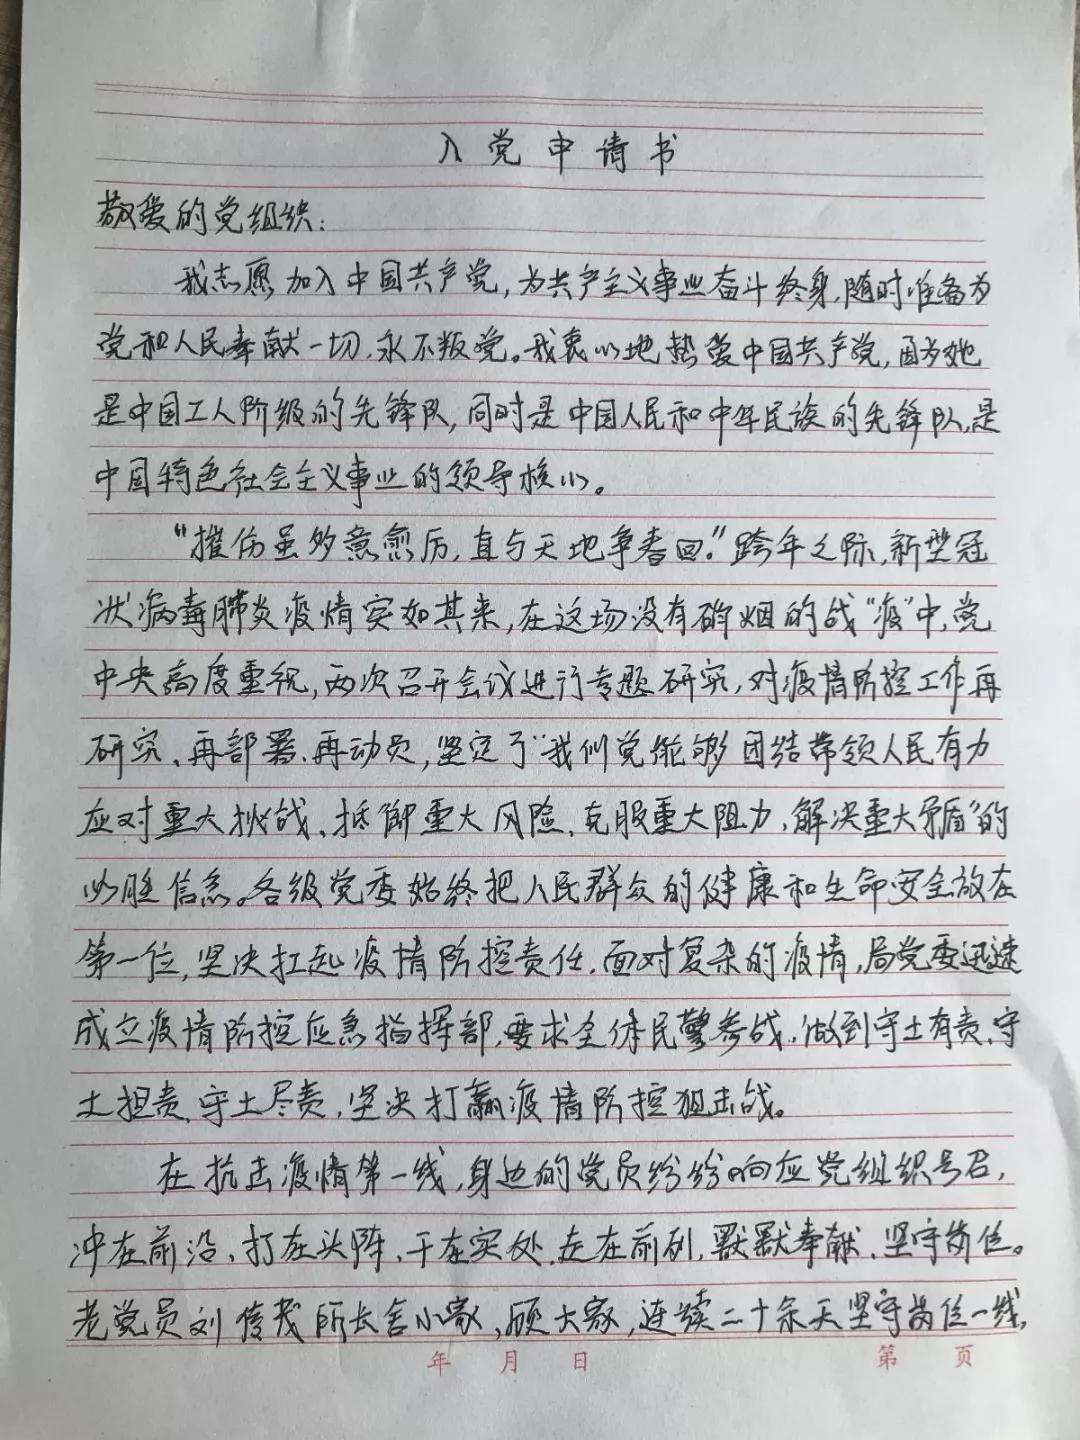 入党申请书
敬爱的党组织:
我志愿加入中国共产党,为共产主义事业奋斗终身,随时准备为
党和人民奉献一切,永不叛党。我衷心地热爱中国共产党,因为她
是中国工人阶级的先锋队,同时是中国人民和中华民族的先锋队,是
中国特色社会主义事业的领导核心。
“摧伤虽多意愈厉,直与天地争春回。”跨年之际,新型冠
状病毒肺炎疫情突如其来,在这场没有硝烟的战“疫”中,党
中央高度重视,两次召开会议进行专题研究,对疫情防控工作再
研究、再部署、再动员,坚定了“我们党能够团结带领人民有力
应对重大挑战、抵御重大风险、克服重大阻力、解决重大矛盾”的
必胜信念。各级党委始终把人民群众的健康和生命安全放在
第一位,坚决扛起疫情防控责任。面对复杂的疫情,局党委迅速
成立疫情防控应急指挥部,要求全体民警参战,做到守土有责、守
土担责、守土尽责,坚决打赢疫情防控狙击战。
在抗击疫情第一线,身边的党员纷纷响应党组织号召,
冲在前沿、打在头阵、干在实处、走在前列,默默奉献、坚守岗位。
老党员刘传茂所长舍小家,顾大家,连续二十余天坚守岗位一线,
年 月 日 第 页